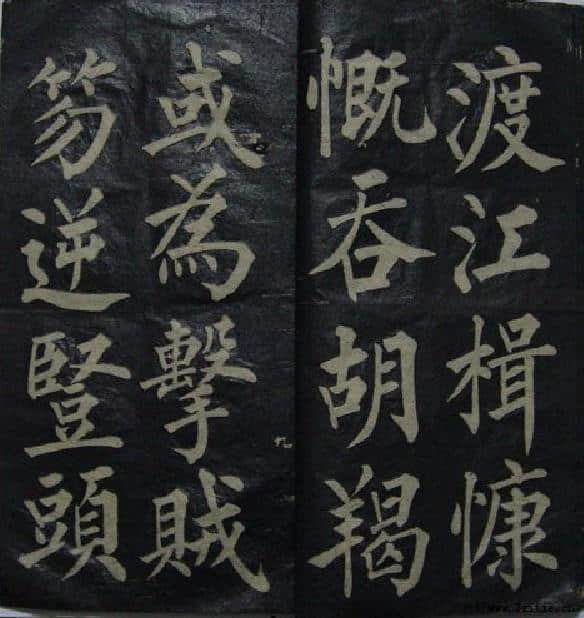 渡江楫慷
慨吞胡羯
或為擊賊
笏逆豎頭
九